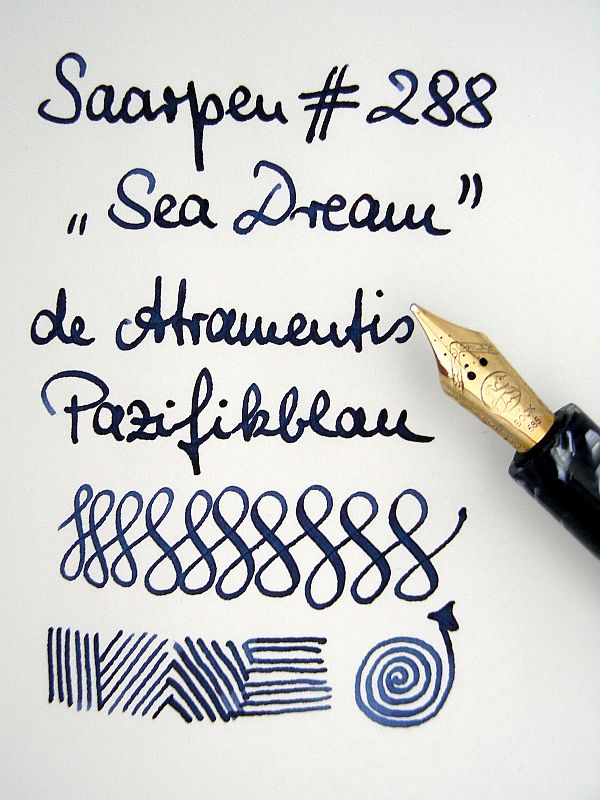 Saarpen # 288
„Sea Dream”
de Atramentis
Pazifikblau